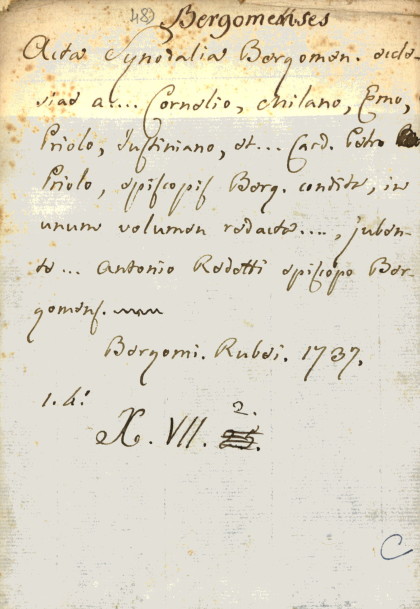 48) Bergomenses
Acta Synodalia Bergomen. eccle-
siae a.... Cornelio, Milano, Emo,
Priolo, Justiniano, et... Card. Petro
Priolo, episcopis Berg. condita, in
unum volumen redacta...., juben-
te... Antonio Redetti episcopo Ber-
gomens.
Bergomi. Rubei. 1737.
1. 4.º
X. VII. 2.
C